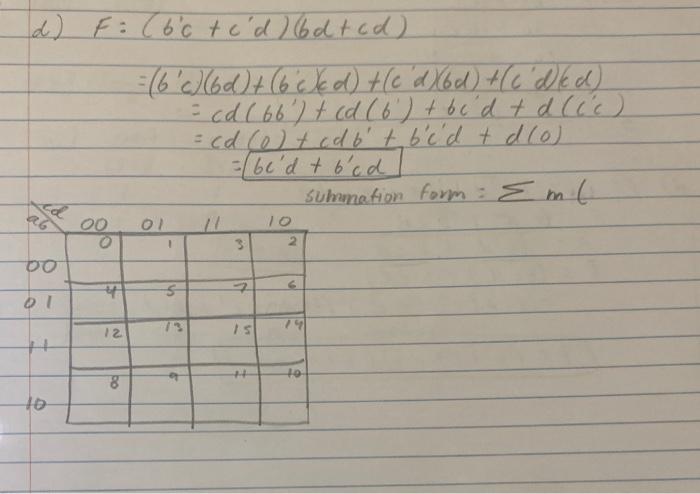 d) F = (b'c + c'd)(bd + cd)
= (b'c)(bd) + (b'c)(cd) + (c'd)(bd) + (c'd)(cd)
= cd(bb') + cd(b') + bc'd + d(c'c)
= cd(0) + cdb' + b'c'd + d(0)
= bc'd + b'cd
summation form = Σ m (
cd
ab 00 01 11 10
00 0 1 3 2
01 4 5 7 6
11 12 13 15 14
10 8 9 11 10